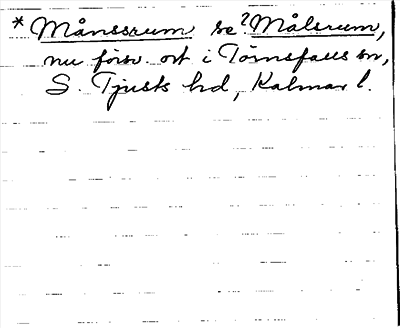 * Månssrum se? Målsrum,
nu förs. ort i Törnsfalls sn,
S. Tjusts hd, Kalmar l.